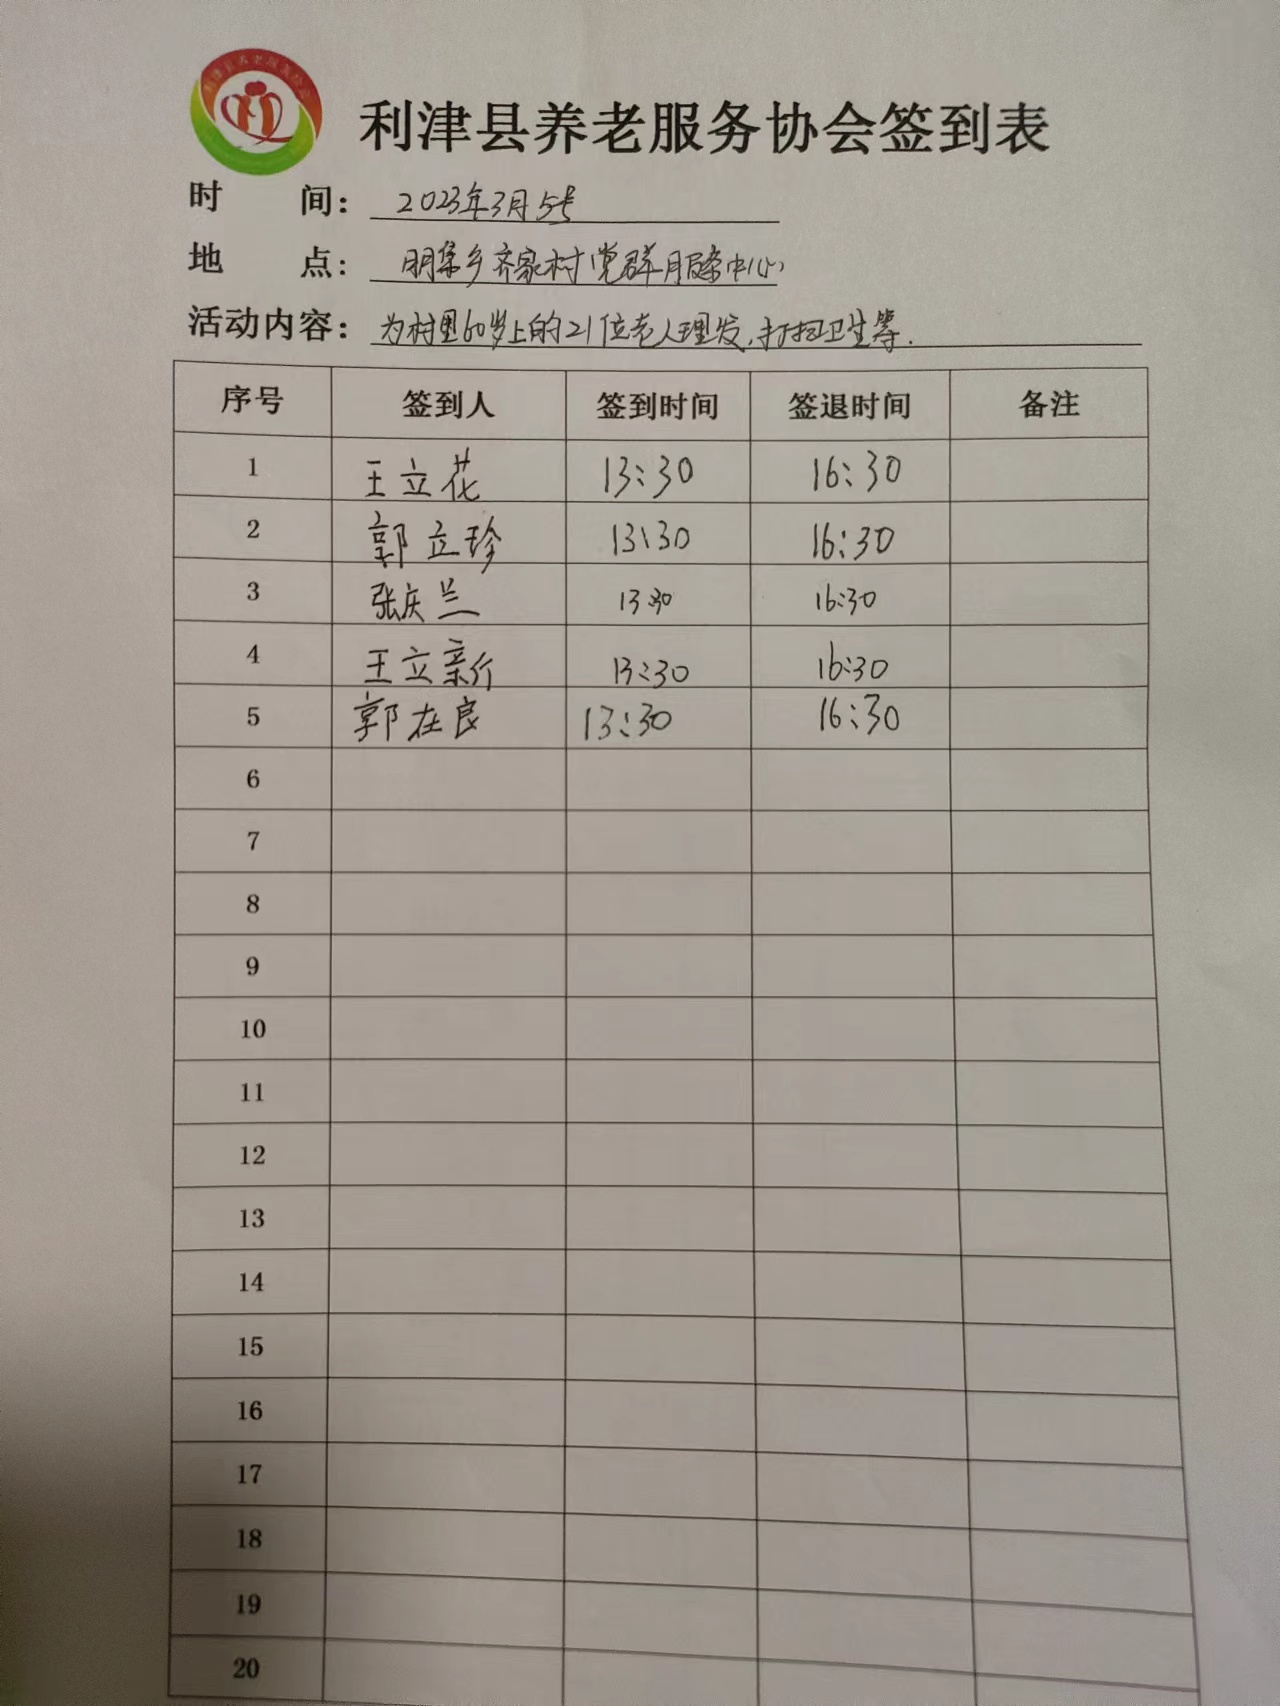 利津县养老服务协会
利津县养老服务协会签到表
时 间： 2023年3月5号
地 点： 明集乡齐家村党群服务中心
活动内容： 为村里60岁上的21位老人理发，打扫卫生等.
序号 签到人 签到时间 签退时间 备注
1 王立花 13:30 16:30
2 郭立珍 13:30 16:30
3 张庆兰 13:30 16:30
4 王立新 13:30 16:30
5 郭在良 13:30 16:30
6
7
8
9
10
11
12
13
14
15
16
17
18
19
20